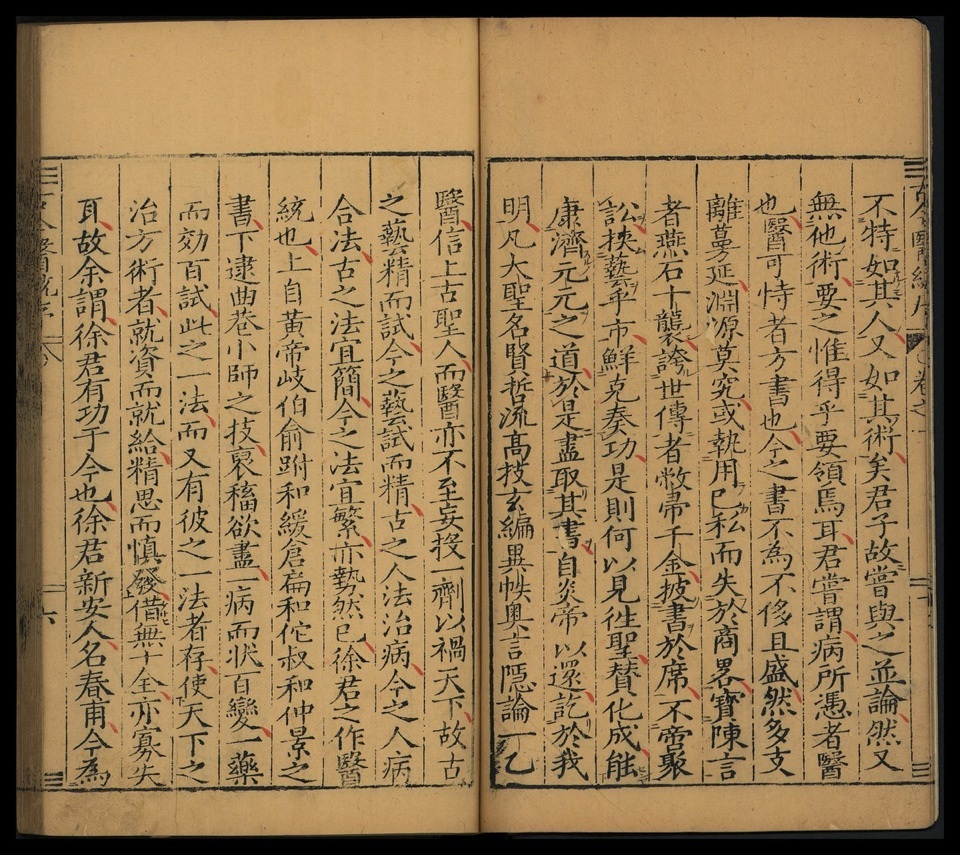 古今醫統序 卷之一
不特如其人又如其術矣君子故嘗與之並論然又
無他術要之惟得乎要領焉耳君嘗謂病所憑者醫
也醫可恃者方書也今之書不為不侈且盛然多支
離蔓延淵源莫究或執用已私而失於商畧寶陳言
者燕石十襲誇世傳者敝帚千金披書於席不啻聚
訟挾藝乎市鮮克奏功是則何以見徃聖賛化成能
康濟元元之道於是盡取其書自炎帝以還訖於我
明凡大聖名賢哲流高技玄編異帙奥言隱論一乙
醫信上古聖人而醫亦不至妄投一劑以禍天下故古
之藝精而試今之藝試而精古之人法治病今之人病
合法古之法宜簡今之法宜繁亦勢然已徐君之作醫
統也上自黃帝岐伯俞跗和緩倉扁和佗叔和仲景之
書下逮曲巷小師之技裒稸欲盡一病而狀百變一藥
而効百試此之一法而又有彼之一法者存使天下之
治方術者就資而就給精思而慎發借無十全亦寡失
耳故余謂徐君有功于今也徐君新安人名春甫今為
古今醫統序 六